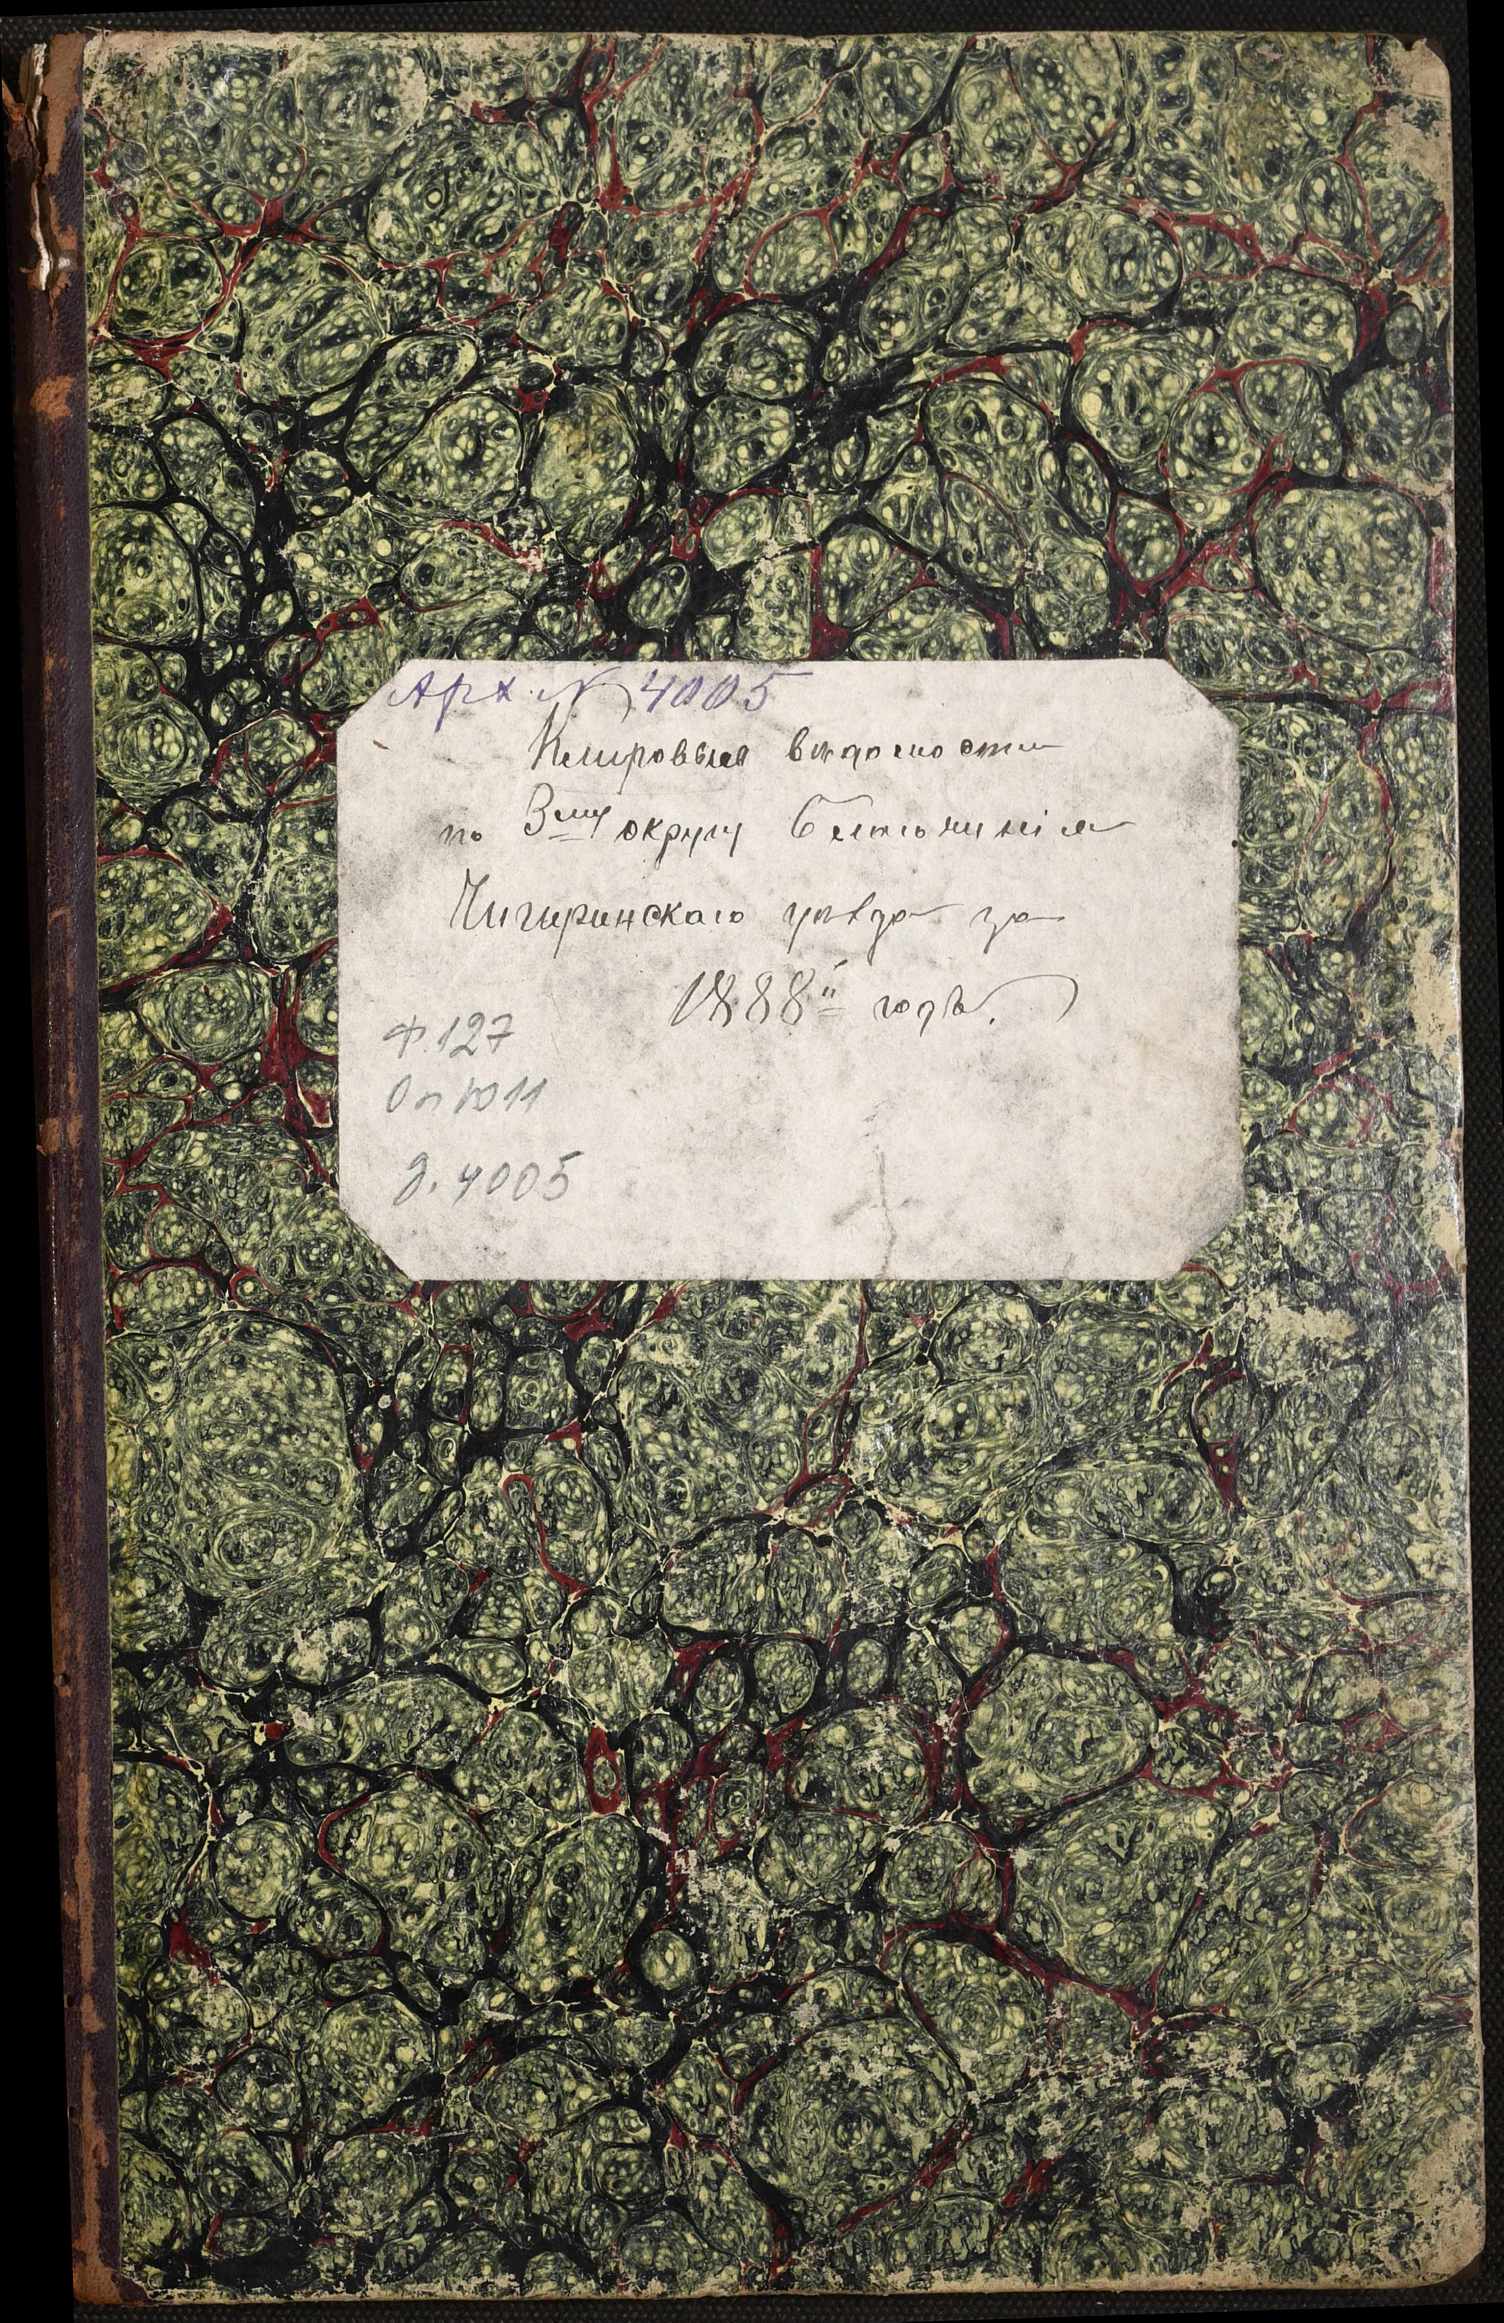 Арх. № 4005
Клировыя вѣдомости
по 3му округу благочинія
Чигиринскаго уѣзда за
1888й годъ.
Ф. 127
Оп 1011
д. 4005